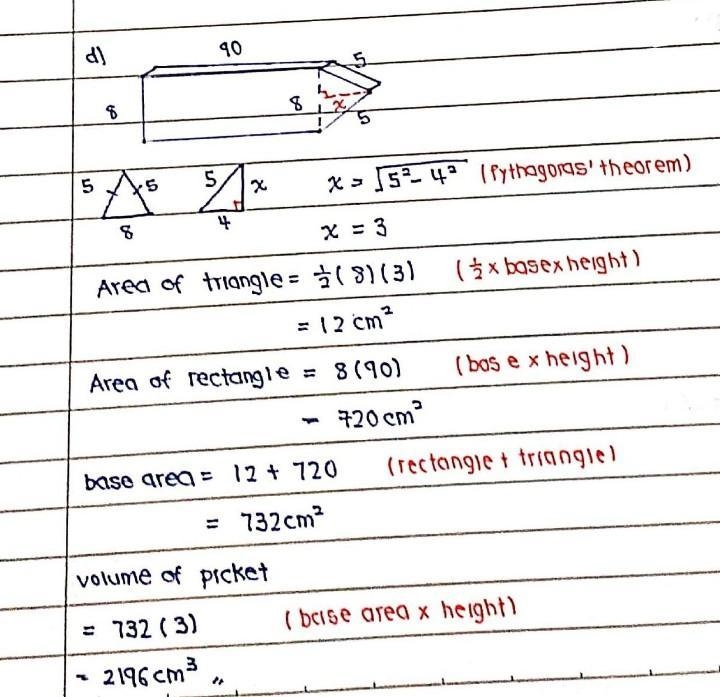 d)
90
5
8
8
x
5
5
5
8
5
x
4
x = √5² - 4² (Pythagoras' theorem)
x = 3
Area of triangle = ½(8)(3) (½ x base x height)
= 12 cm²
Area of rectangle = 8(90) (base x height)
= 720 cm²
base area = 12 + 720 (rectangle + triangle)
= 732 cm²
volume of picket
= 732 (3) (base area x height)
= 2196 cm³ ,,